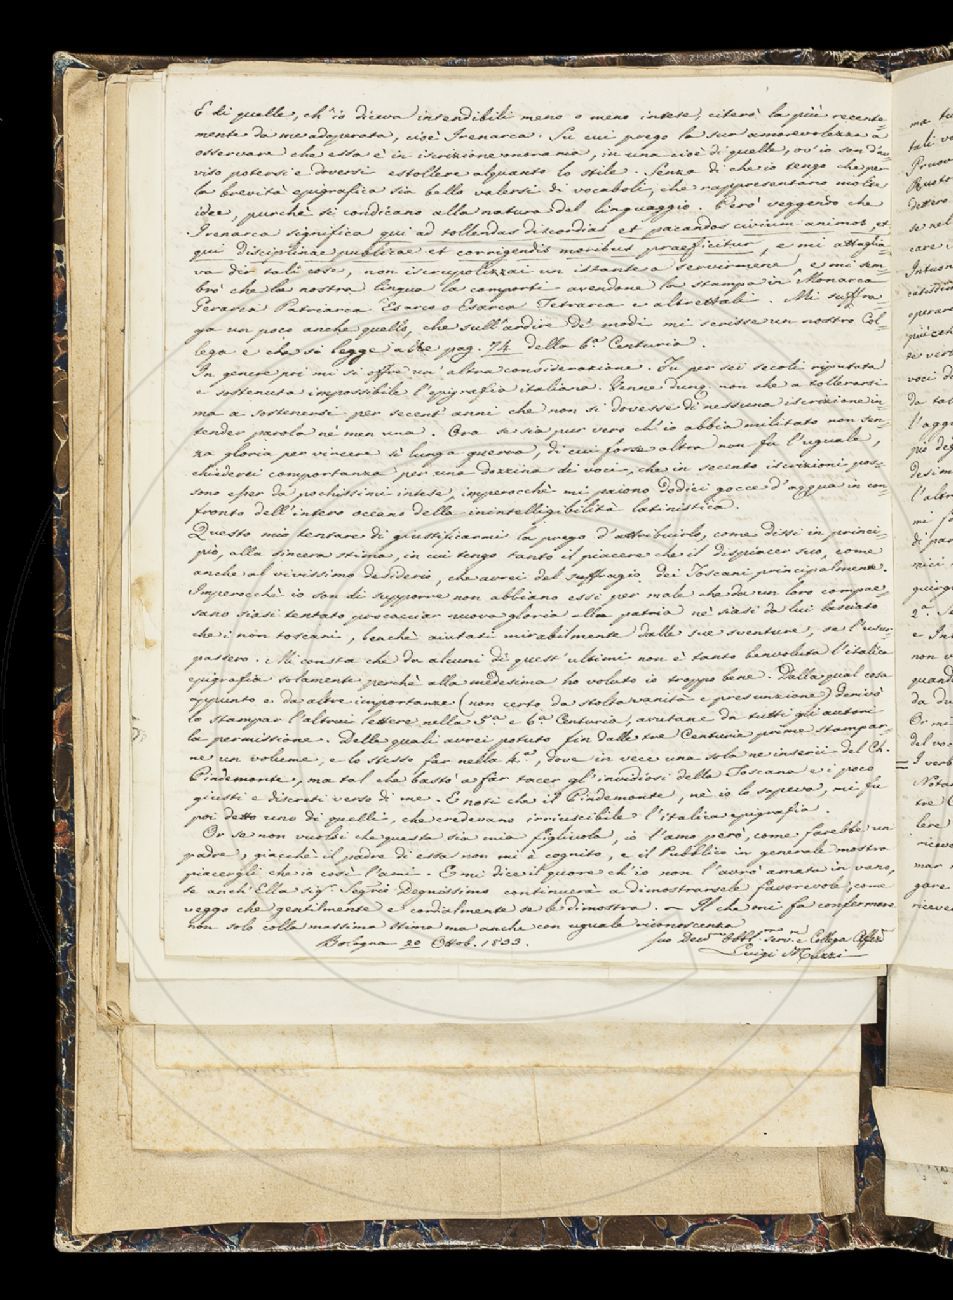 E di quelle, ch'io diceva intendibili meno o meno intese, citerò la più recente-
mente da me adoperata, cioè Irenarca. Su cui prego la sua amorevolezza a
osservare che essa è in iscrizione onoraria, in una cioè di quelle, ov'io son d'av-
viso potersi e doversi estollere alquanto lo stile. Senza di che io tengo che per
la brevità epigrafica sia bello valersi di vocaboli, che rappresentano molte
idee, purchè si condicano alla natura del linguaggio. Però veggendo che
Irenarca significa qui ad tollendas discordias et pacandos civium animos, et
qui disciplinae publicae et corrigendis moribus praeficitur, e mi attaglia-
va dir tali cose, non iscrupolizzai un istante a servirmene, e mi sem-
brò che la nostra lingua la comporti avendone la stampa in Monarca
Gerarca Patriarca Esarco o Esarca Tetrarca e altrettali. Mi suffra-
ga un poco anche quello, che sull'ardire de' modi mi scrisse un nostro Col-
lega e che si legge alle pag. 74 della 6.ª Centuria.
In genere poi mi si offre un'altra considerazione. Fu per sei secoli riputata
e sostenuta impossibile l'epigrafia italiana. Venne dunq. non che a tollerarsi
ma a sostenersi per secent'anni che non si dovesse di nessuna iscrizione in-
tender parola nè men una. Ora se sia pur vero ch'io abbia militato non sen-
za gloria per vincere sì lunga guerra, di cui forse altra non fu l'uguale,
chiederei comportanza per una dozzina di voci, che in secento iscrizioni pos-
sono esser da pochissimi intese, imperocchè mi paiono dodici gocce d'acqua in con-
fronto dell'intero oceano della inintelligibilità latinistica.
Questo mio tentare di giustificarmi la prego d'attribuirlo, come dissi in princi-
pio, alla sincera stima, in cui tengo tanto il piacere che il dispiacer suo, come
anche al vivissimo desiderio, che avrei del suffragio dei Toscani principalmente.
Imperocchè io son di supporre non abbiano essi per male che da un loro compae-
sano siasi tentato procacciar nuova gloria alla patria nè siasi da lui lasciato
che i non toscani, benchè aiutati mirabilmente dalle sue sventure, se l'usur-
passero. Mi consta che da alcuni di quest'ultimi non è tanto benvoluta l'italica
epigrafia solamente perchè alla medesima ho voluto io troppo bene. Dalla qual cosa
appunto e da altre importanze (non certo da stolta vanità e presunzione) derivò
lo stampar l'altrui lettere nella 5.ª e 6.ª Centuria, avutane da tutti gli autori
la permissione. Delle quali avrei potuto fin dalle tre Centurie prime stampar-
ne un volume, e lo stesso far nella 4.ª, dove in vece una sola ne inserii del Ch.
Pindemonte, ma tal che bastò a far tacer gl'invidiosi della Toscana e i poco
giusti e discreti verso di me. E noti che il Pindemonte, nè io lo sapeva, mi fu
poi detto uno di quelli, che credevano inriuscibile l'italica epigrafia.
Or se non vuolsi che questa sia mia figliuola, io l'amo però come farebbe un
padre, giacchè il padre di essa non mi è cognito, e il Pubblico in generale mostra
piacergli che io così l'ami. E mi dice il cuore ch'io non l'avrò amata in vano,
se anch'Ella sig. Segrio Degnissimo continuerà a dimostrarsele favorevole, come
veggo che gentilmente e cordialmente se le dimostra. – Il che mi fa confermare
non solo colla massima stima ma anche con uguale riconoscenza
Bologna 20 Ottob. 1833.
suo Dev.mo Obbl.mo serv. e Collega Affez.mo
Luigi Muzzi